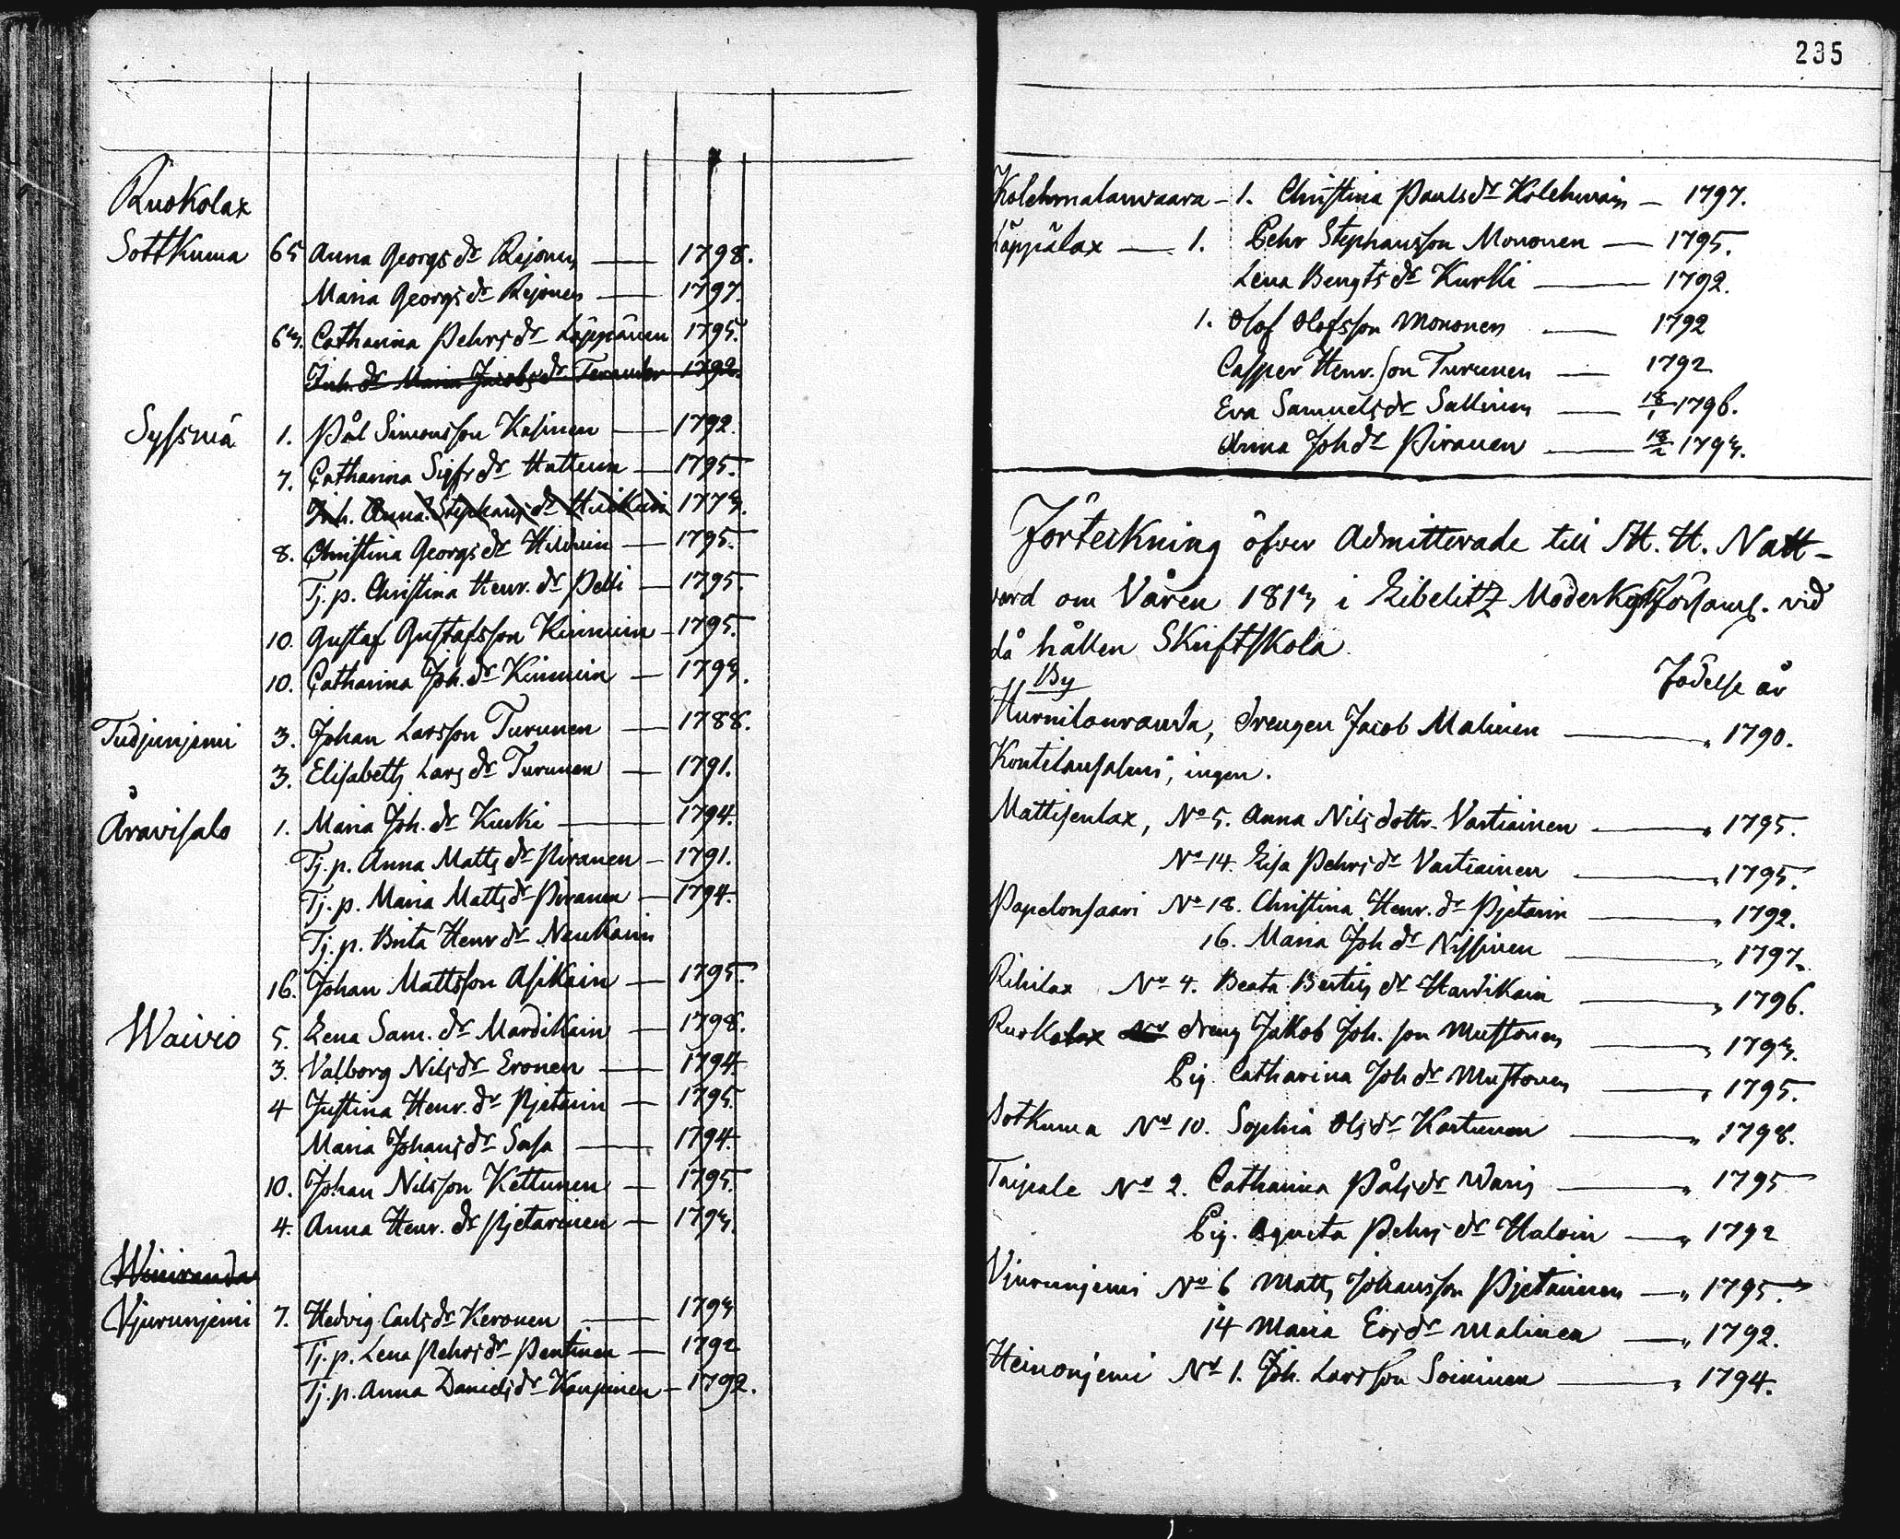 235
Ruokolax
Sottkuma 65 Anna Georgs dr Rejonen — 1798.
Maria Georgs dr Rejonen — 1797.
63. Catharina Pehrs dr Läppänen 1795.
Inh. dr Maria Jacobs dr 1792.
Sysmä 1. Pål Simonsson Kasinen — 1792.
7. Catharina Sigfr dr Hattunn — 1795.
Inh. Anna Stephans dr 1773.
8. Christina Georgs dr — 1795.
Tj. p. Christina Henr. dr Pelli — 1795.
10. Gustaf Gustafsson Kinnunn — 1795.
10. Catharina Joh. dr Kinnunn — 1793.
Tudjunjemi 3. Johan Larsson Turunen — 1788.
3. Elisabeth Lars dr Turunen — 1791.
Aravisalo 1. Maria Joh. dr Kurki — 1794.
Tj. p. Anna Matts dr Piranen — 1791.
Tj. p. Maria Matts dr Piranen — 1794.
Tj. p. Brita Henr dr Naukarin
16. Johan Mattsson Asikain — 1795.
Waivio 5. Lena Sam. dr Mardikain — 1798.
3. Valborg Nils dr Eronen — 1794.
4 Justina Henr. dr Pjetarin — 1795.
Maria Johans dr Sasa — 1794.
10. Johan Nilsson Kettunen — 1795.
4. Anna Henr. dr Pjetarinen — 1793.
Winiranda
Vjurunjemi 7. Hedvig Carls dr Keronen — 1793
Tj. p. Lena Pehrs dr Pentinen — 1792
Tj. p. Anna Daniels dr Kaupinen — 1792.
Kolehmalanwaara – 1. Christina Pauls dr Kolehmain — 1797.
Läppälax — 1. Pehr Stephansson Mononen — 1795.
Lena Bengts dr Kurki — 1792.
1. Olof Olofsson Mononen — 1792
Casper Henr. son Turunen — 1792
Eva Samuels dr Sallinen — 18/1 1796.
Anna Joh dr Piranen — 1793.
Förteckning öfver Admitterade till H. H. Natt-
vard om Våren 1813 i Libelitz Moderkyrkoförsaml. vid
då hållen Skriftskola.
By Födelse år
Hurnilanranda, drengen Jacob Malinen — " 1790.
Kontilansalmi, ingen.
Mattisenlax, No 5. Anna Nils dottr. Vartiainen — " 1795.
No 14. Lisa Pehrs dr Vartiainen — " 1795.
Papelonsaari No 18. Christina Henr. dr Pjetarin — " 1792.
16. Maria Joh dr Nissinen — " 1797.
Rihilax No 4. Beata Bertils dr Hardikain — " 1796.
Ruokolax No dreng Jakob Joh. son Mustonen — " 1793.
Pig. Catharina Joh dr Mustonen — " 1795.
Sotkuma No 10. Sophia Ols dr Kartunen — " 1798.
Taipale No 2. Catharina Påls dr Waris — " 1795
Pig. Agneta Pehrs dr Haloin — " 1792
Vjurunjemi No 6 Matts Johansson Pjetarinen — " 1795.
14 Maria Ers dr Malinen — " 1792.
Heinonjemi No 1. Joh. Larsson Soininen — " 1794.